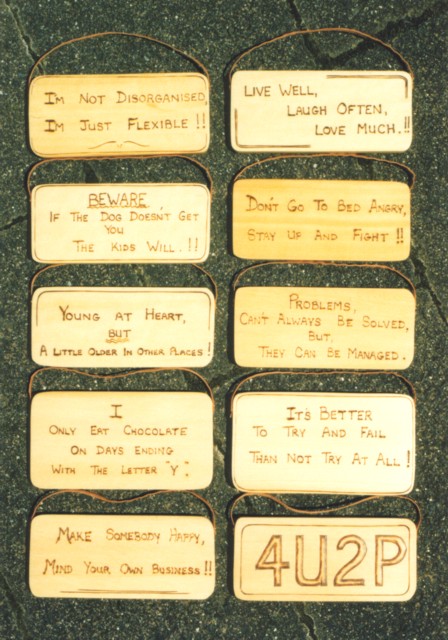 I'm Not Disorganised,
I'm Just Flexible !!
Live Well,
Laugh Often,
Love Much.!!
BEWARE
If The Dog Doesn't Get
You
The Kids Will.!!
Don't Go To Bed Angry,
Stay Up And Fight !!
Young at Heart,
But
A Little Older In Other Places!
Problems,
Can't Always Be Solved,
But,
They Can Be Managed.
I
Only Eat Chocolate
On Days Ending
With The Letter "Y".
It's Better
To Try And Fail
Than Not Try At All!
Make Somebody Happy,
Mind Your Own Business!!
4U2P